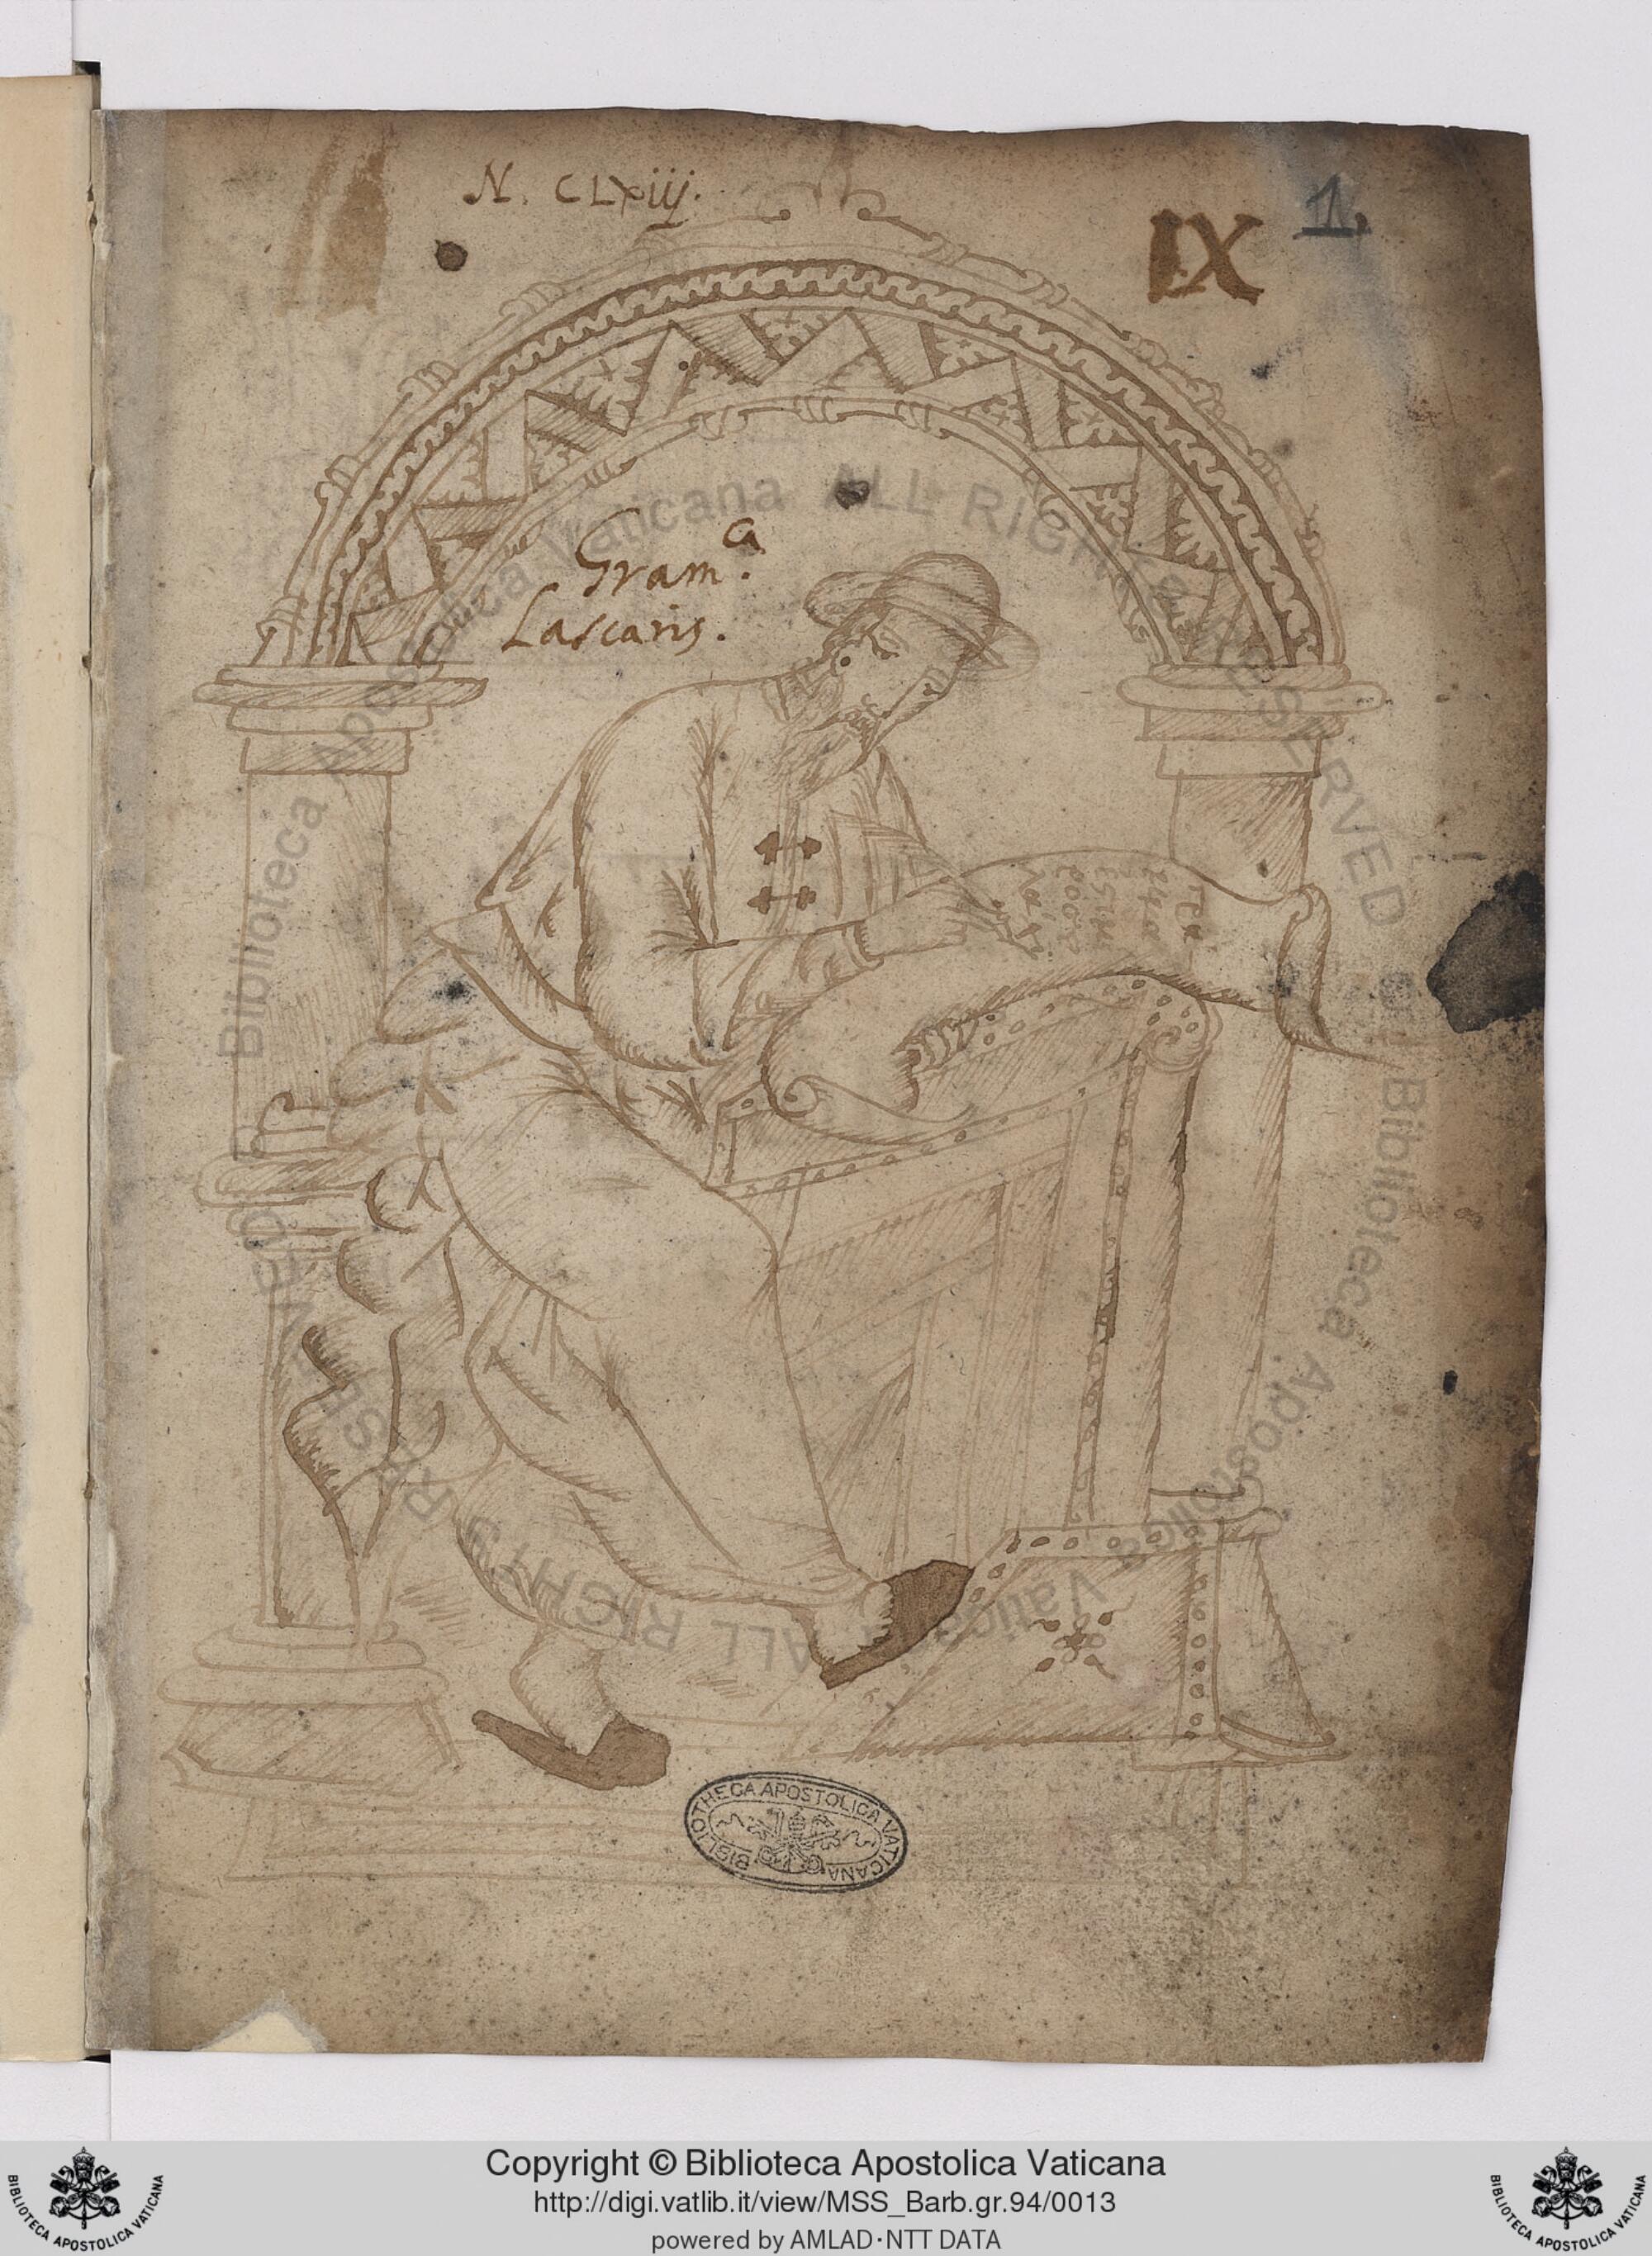 N. CLXiij.
IX
1.
Gram.ca
Lascaris.
BIBLIOTHECA APOSTOLICA VATICANA
Biblioteca Apostolica Vaticana ALL RIGHTS RESERVED © Biblioteca Apostolica Vaticana ALL RIGHTS RESERVED ©
Copyright © Biblioteca Apostolica Vaticana
http://digi.vatlib.it/view/MSS_Barb.gr.94/0013
powered by AMLAD·NTT DATA
BIBLIOTECA APOSTOLICA VATICANA
BIBLIOTECA APOSTOLICA VATICANA